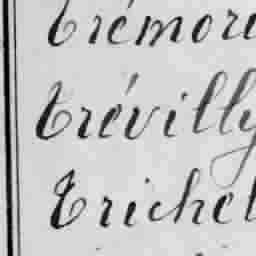 Trémor
Trévilly
Trichet